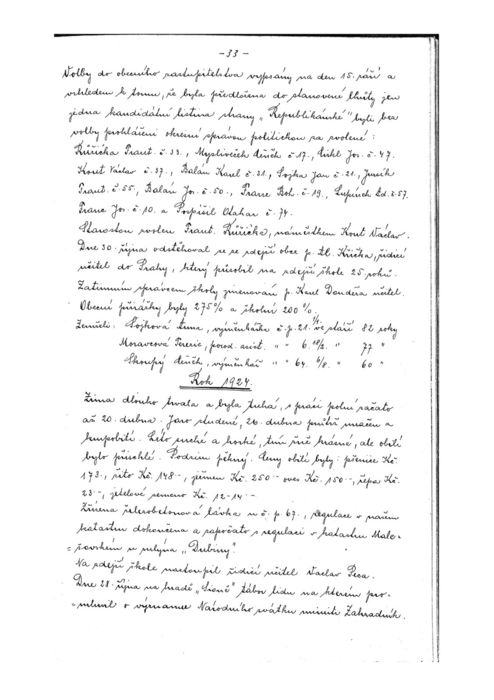 -33-
Volby do obecního zastupitelstva vypsány na den 15. září a
vzhledem k tomu, že byla předložena do stanovené lhůty jen
jedna kandidátní listina strany „Republikánské" byli bez
volby prohlášeni okresní správou politickou za zvolené:
Růžička Frant. č. 33., Mysliveček Oldř. č. 17., Cikl Jos. č. 47.
Kout Václav č. 37., Balán Karel č. 31., Sojka Jan č. 21.,
Frant. č. 55., Balán Jos. č. 50., Franc Boh. č. 19., Lupínek Ed. č. 57.
Franc Jos. č. 10. a Pospíšil Otakar č. 74.
Starostou zvolen Frant. Růžička, náměstkem Kout Václav.
Dne 30. října odstěhoval se ze zdejší obce p. Křička, řídící
učitel do Prahy, který působil na zdejší škole 25 roků.
Zatímním správcem školy jmenován p. Karel Donděra učitel.
Obecní přirážky byly 275% a školní 200%.
Zemřeli: Sojková Anna, výměnkářka č. p. 21. ve stáří 82 roky
Moravcová Terezie, porod. asist. „ „ 6. „ 77 „
Skoupý Oldř., výměnkář „ „ 64. 6/8. „ 60 „
Rok 1924.
Zima dlouho trvala a byla tuhá, s prací polní začato
až 20. dubna. Jaro studené, 26. dubna průtrž mračen a
krupobití. Léto suché a horké, tím žně krásné, ale obilí
bylo přischlé. Podzim pěkný. Ceny obilí byly: pšenice Kč
173-, žito Kč 148-, ječmen Kč. 250- oves Kč. 150-, řepa Kč.
23-, jetelové semeno Kč. 12-14-
Zřízena železobetonová lávka u č. p. 67., regulace v našem
katastru dokončena a započato s regulací v katastru Malo-
=žovském u mlýna „Dubiny".
Na zdejší škole nastoupil řídící učitel Václav Peca.
Dne 28. října na hradě „Lioně" tábor lidu na kterém pro-
=mluvil o významu Národního svátku ministr Zahradník.